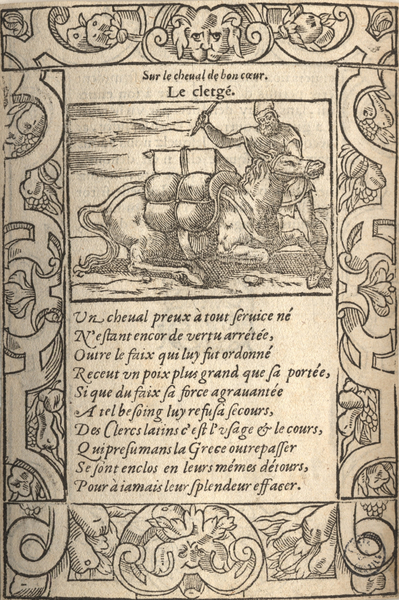 Sur le cheual de bon cœur.
Le clergé.
Vn cheual preux à tout seruice né
N'estant encor de vertu arrétée,
Outre le faix qui luy fut ordonné
Receut vn poix plus grand que sa portée,
Si que du faix sa force agrauantée
A tel besoing luy refusa secours,
Des Clercs latins c'est l'vsage & le cours,
Qui presumans la Grece outrepasser
Se sont enclos en leurs mémes détours,
Pour à iamais leur splendeur effacer.